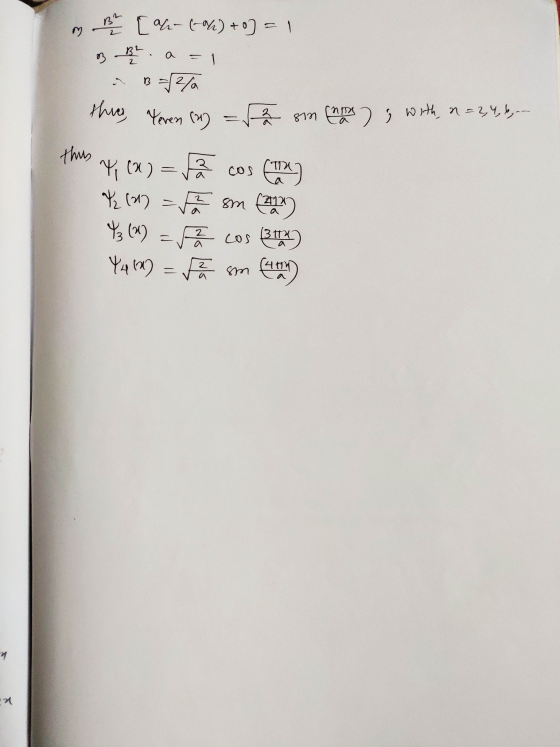 ⇒ B²/2 [a/2 - (-a/2) + 0] = 1
⇒ B²/2 · a = 1
∴ B = √(2/a)
thus, Ψeven (x) = √(2/a) sin (nπx/a) ; with, n = 2, 4, 6, ...
thus Ψ₁ (x) = √(2/a) cos (πx/a)
Ψ₂ (x) = √(2/a) sin (2πx/a)
Ψ₃ (x) = √(2/a) cos (3πx/a)
Ψ₄ (x) = √(2/a) sin (4πx/a)